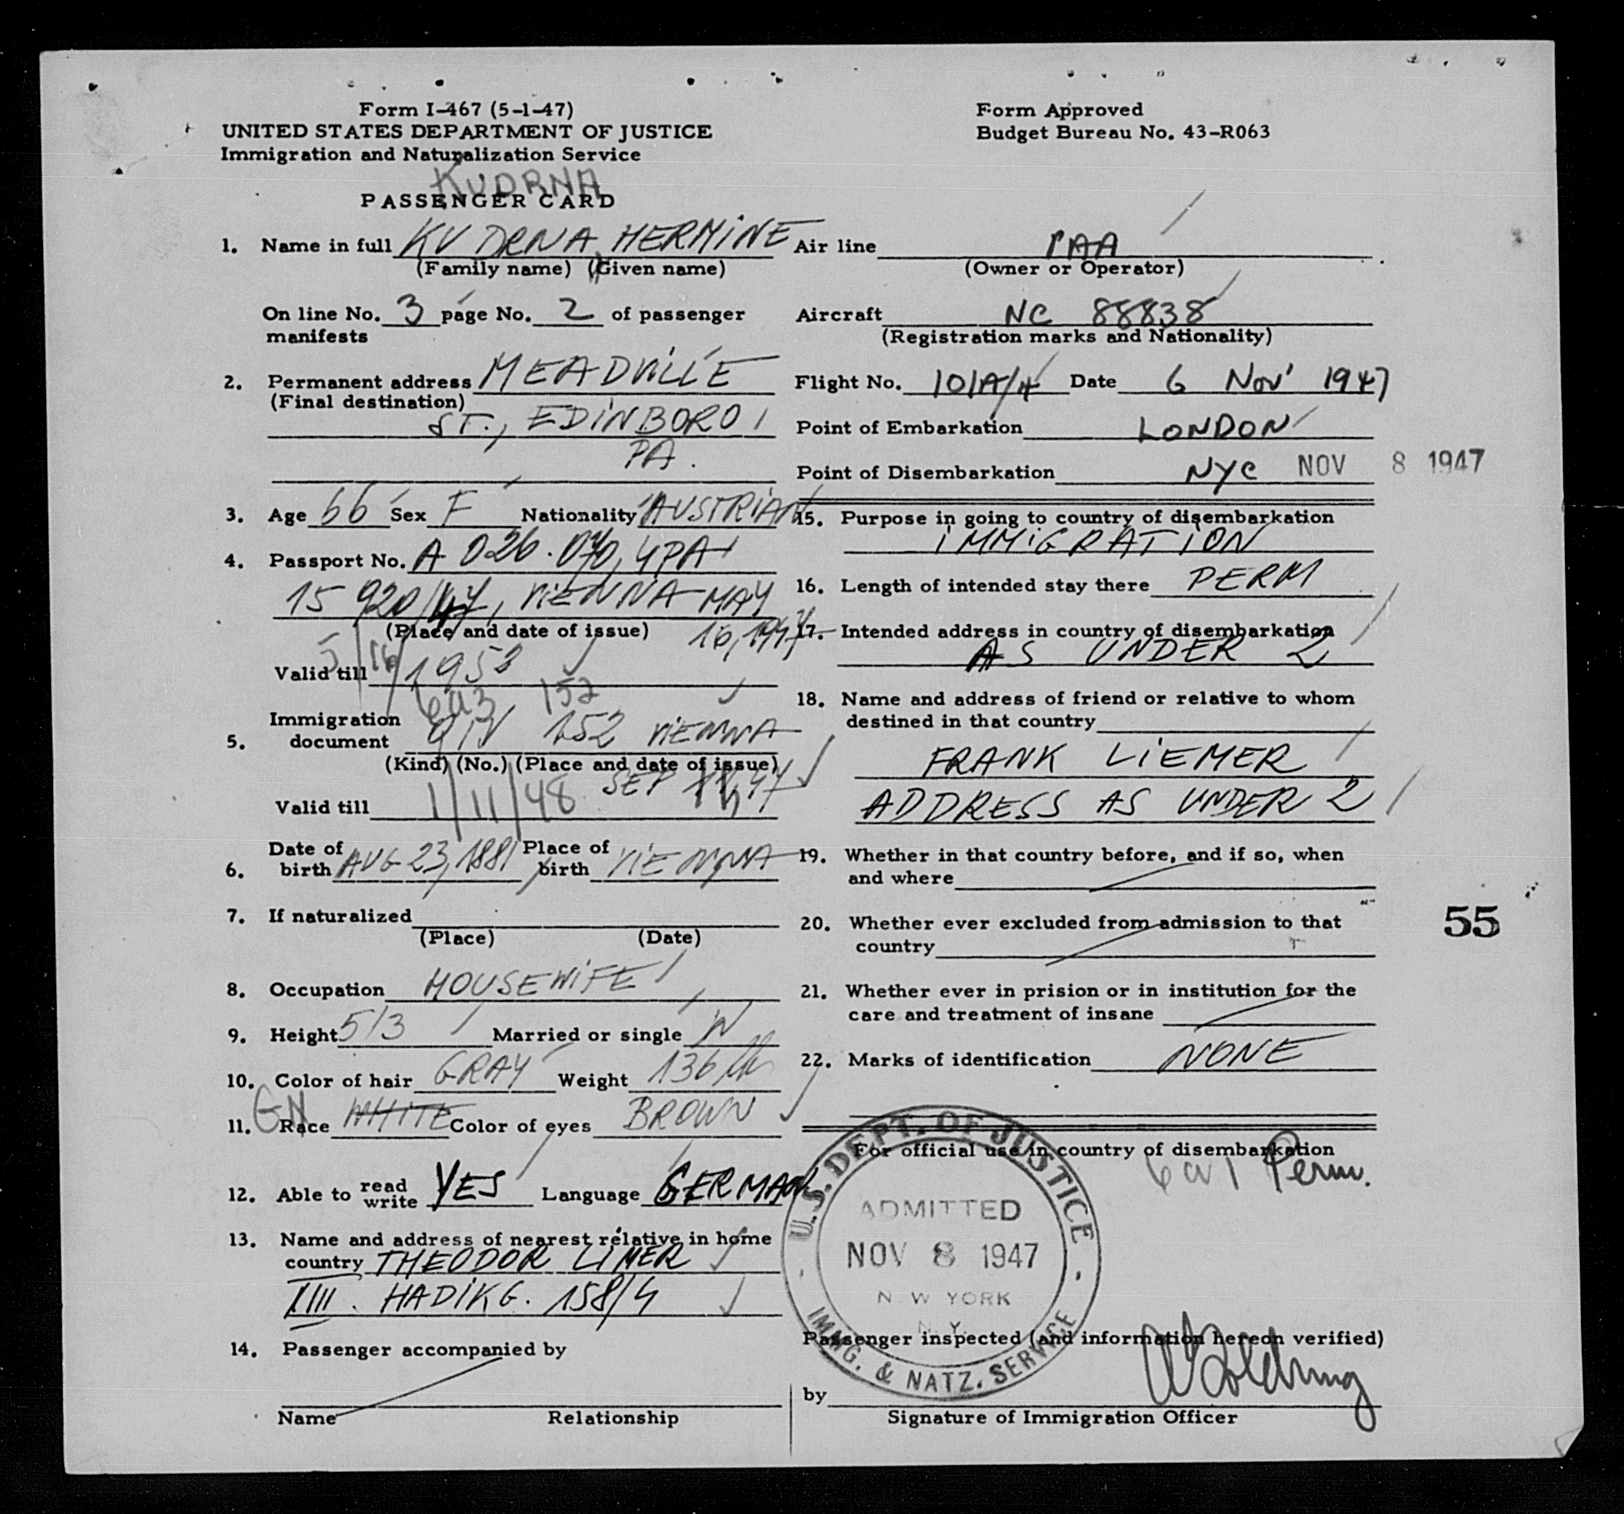 Form I-467 (5-1-47)
UNITED STATES DEPARTMENT OF JUSTICE
Immigration and Naturalization Service
Form Approved
Budget Bureau No. 43-R063
KUDRNA
PASSENGER CARD
1. Name in full KUDRNA HERMINE
(Family name) (Given name)
On line No. 3 page No. 2 of passenger
manifests
2. Permanent address MEADVILLE
(Final destination)
ST., EDINBORO
PA.
3. Age 66 Sex F Nationality AUSTRIAN
4. Passport No. A 026.070, 4PA
15 920/47, VIENNA MAY
(Place and date of issue) 16, 1947
Valid till 5/16/1953
6a3 152
Immigration
5. document QIV 152 VIENNA
(Kind) (No.) (Place and date of issue)
SEP 47
Valid till 1/11/48
Date of Place of
6. birth AUG 23, 1881 birth VIENNA
7. If naturalized
(Place) (Date)
8. Occupation HOUSEWIFE
9. Height 5/3 Married or single W
10. Color of hair GRAY Weight 136 lbs
11. Race WHITE GN Color of eyes BROWN
12. Able to read write YES Language GERMAN
13. Name and address of nearest relative in home
country THEODOR LIMER
XIII. HADIKG. 158/4
14. Passenger accompanied by
Name Relationship
Air line PAA
(Owner or Operator)
Aircraft NC 88838
(Registration marks and Nationality)
Flight No. 101A/4 Date 6 Nov' 1947
Point of Embarkation LONDON
Point of Disembarkation NYC NOV 8 1947
15. Purpose in going to country of disembarkation
IMMIGRATION
16. Length of intended stay there PERM
17. Intended address in country of disembarkation
AS UNDER 2
18. Name and address of friend or relative to whom
destined in that country
FRANK LIEMER
ADDRESS AS UNDER 2
19. Whether in that country before, and if so, when
and where
20. Whether ever excluded from admission to that
country
21. Whether ever in prision or in institution for the
care and treatment of insane
22. Marks of identification NONE
55
For official use in country of disembarkation
6a1 Perm.
U.S. DEPT. OF JUSTICE
ADMITTED
NOV 8 1947
N W YORK
N.Y.
IMMG. & NATZ. SERVICE
Passenger inspected (and information hereon verified)
by
Signature of Immigration Officer